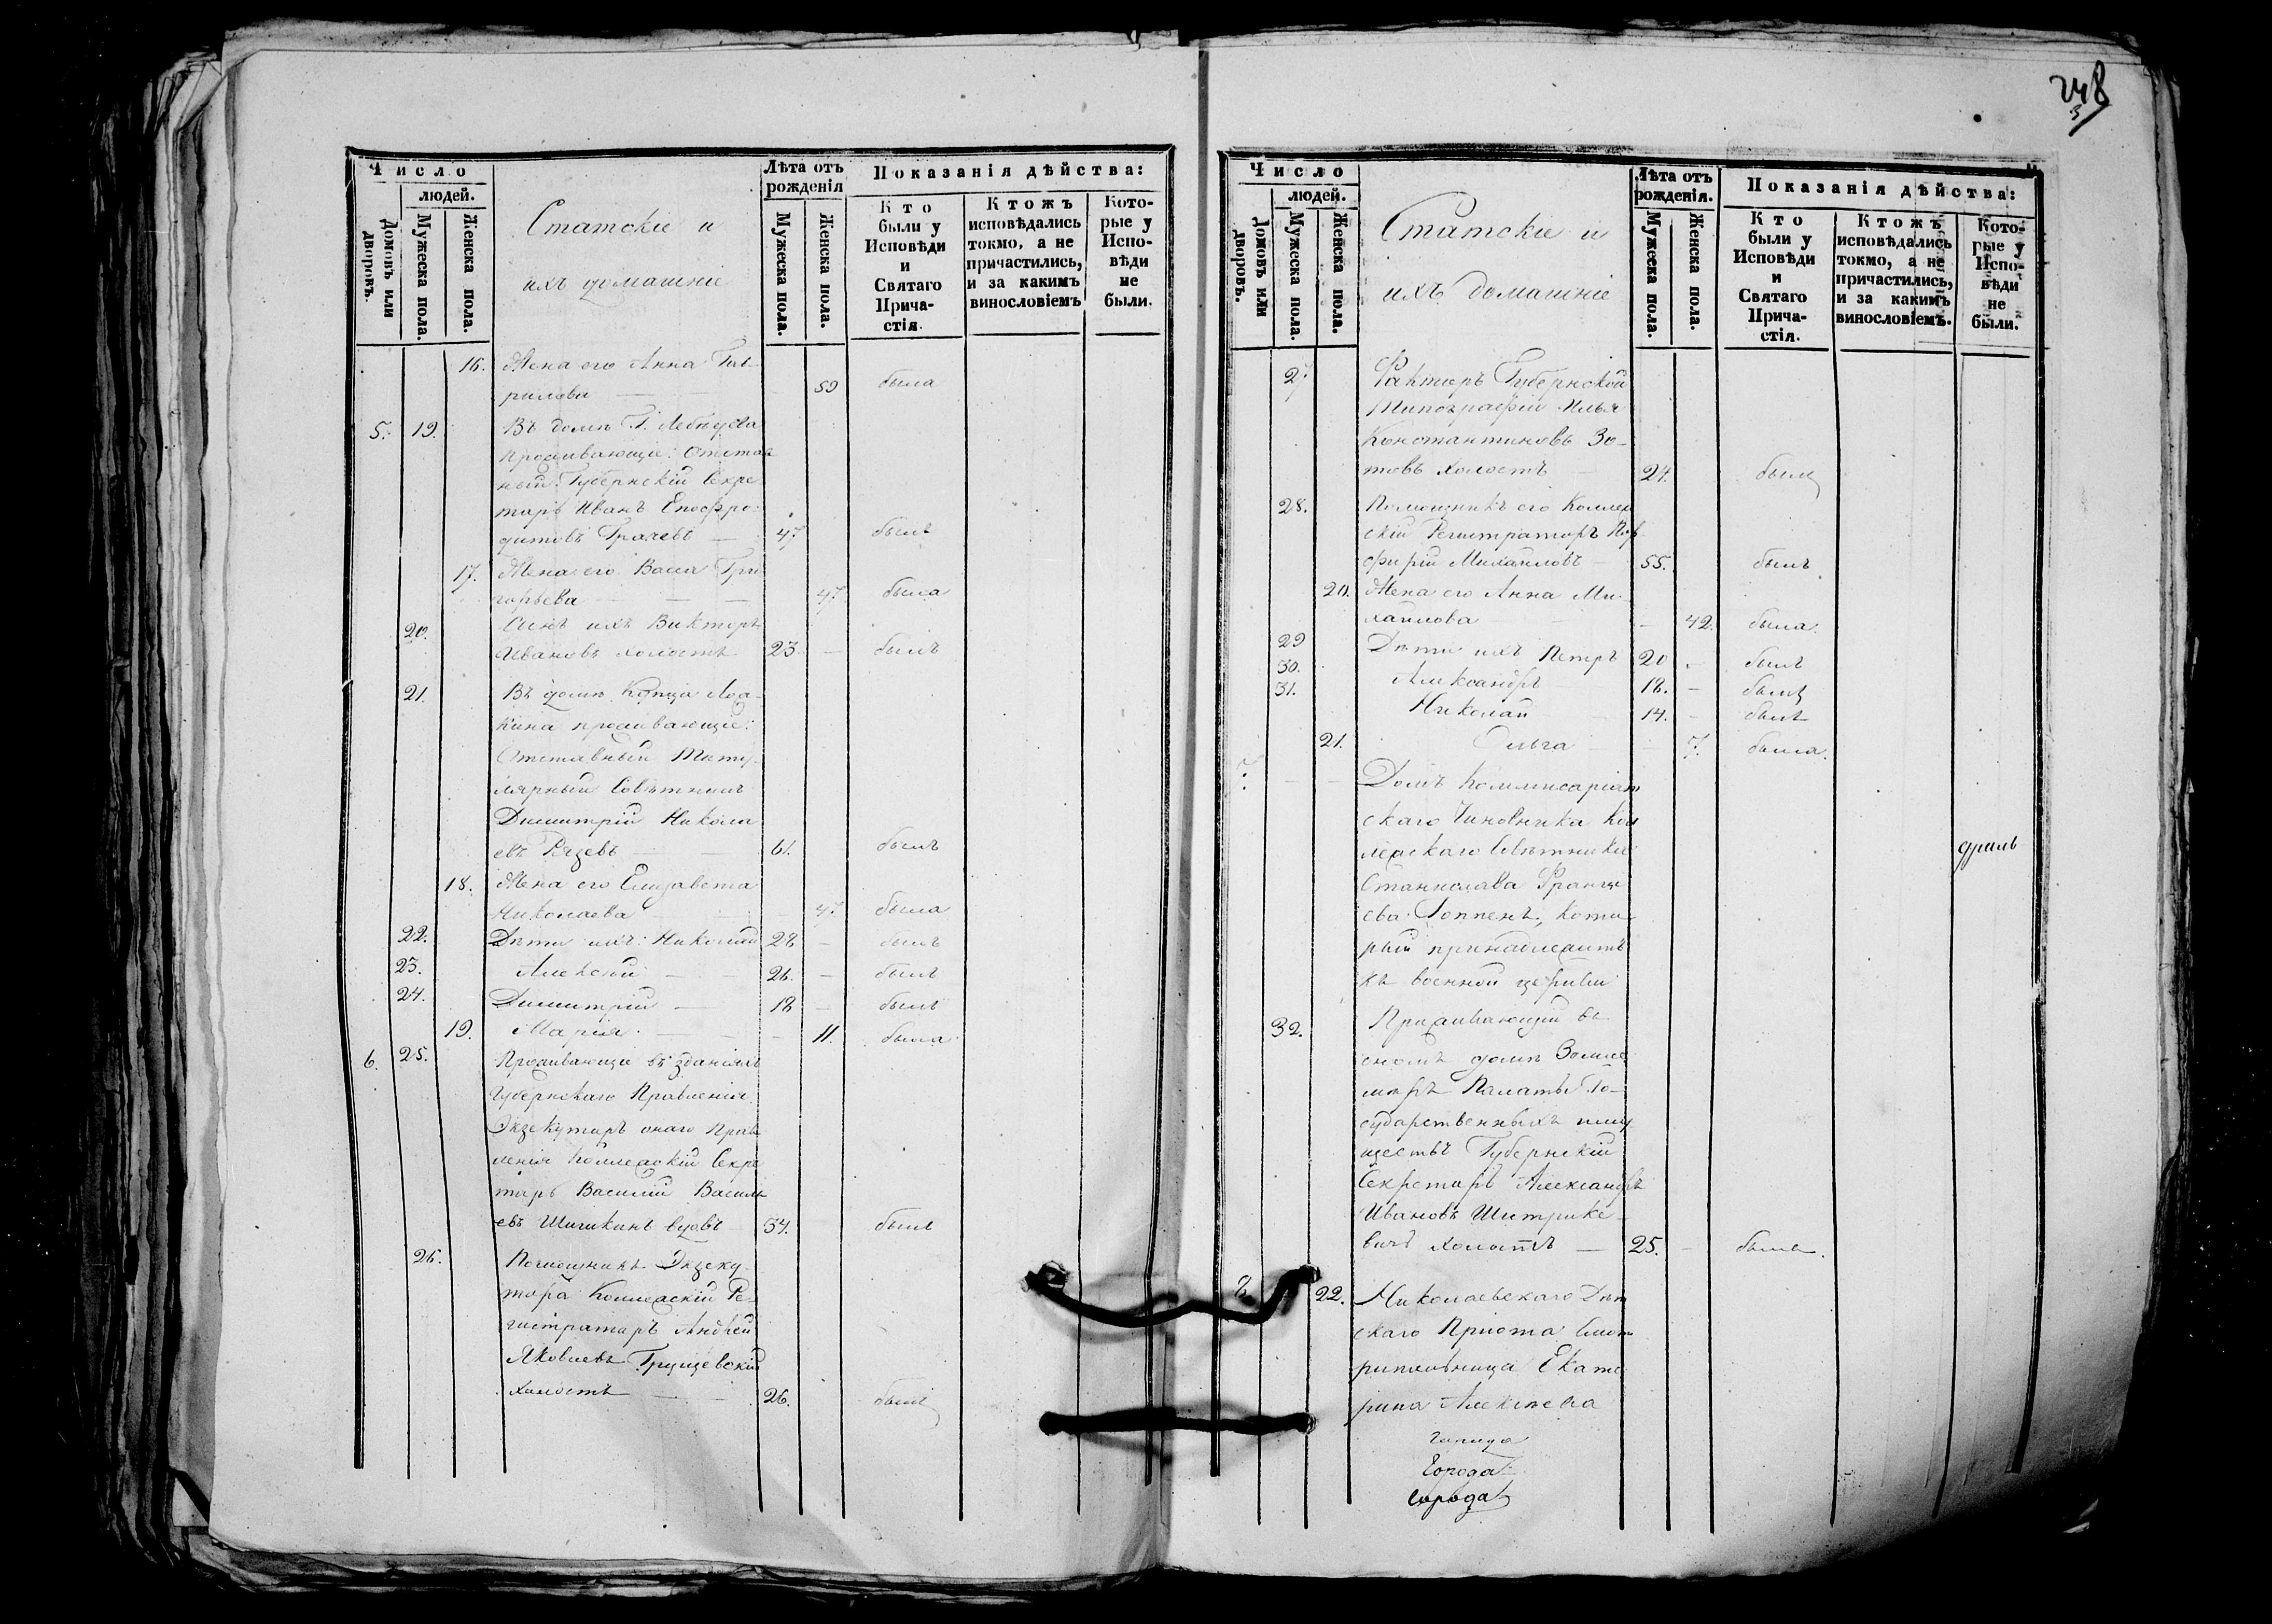 248
3
Число
людей.
Домовъ или дворовъ.
Мужеска пола.
Женска пола.
Статскіе и
ихъ домашніе
Лѣта отъ
рожденія
Мужеска пола.
Женска пола.
Показанія дѣйства:
Кто
были у
Исповѣди
и
Святаго
Прича-
стія.
Ктожъ
исповѣдались
токмо, а не
причастились,
и за какимъ
винословіемъ
Кото-
рые у
Испо-
вѣди
не
были.
16. Жена его Анна Гав-
рилова 59 была
5. 19. Въ домѣ Г.
проживающіе: Отстав
ный Губернскій Секре
тарь Иванъ Епафро-
дитовъ Грачевъ — 47 былъ
17. Жена его Васса Гри
горьева — 47 была
20. Сынъ ихъ Викторъ
Ивановъ холостъ 23 — былъ
21. Въ домѣ Купца Лоа-
кина проживающіе:
Отставный Титу-
лярный Совѣтникъ
Димитрій Никола
евъ — 61. былъ
18. Жена его Елизавета
Николаева — 47 была
22. Дѣти ихъ: Николай 28 — былъ
23. Алексѣй — 26. — былъ
24. Димитрій — 18 — былъ
19. Марія — 11. была
6. 25. Проживающіе въ зданіяхъ
Губернскаго Правленія
Экзекуторъ онаго Прав
ленія Коллежскій Секре
тарь Василій Василь
евъ Шишкинъ вдовъ 34. былъ
26. Помощникъ Экзеку-
тора Коллежскій Ре-
гистраторъ Андрей
Яковлевъ Грушевскій
холостъ — 26. былъ
Число
людей.
Домовъ или дворовъ.
Мужеска пола.
Женска пола.
Статскіе и
ихъ домашніе
Лѣта отъ
рожденія.
Мужеска пола.
Женска пола.
Показанія дѣйства:
Кто
были у
Исповѣди
и
Святаго
Прича-
стія.
Ктожъ
исповѣдались
токмо, а не
причастились,
и за какимъ
винословіемъ.
Кото-
рые у
Испо-
вѣди
не
были.
27 Факторъ Губернской
Типографіи Илья
Константиновъ Зо-
товъ холостъ — 24. былъ
28. Помощникъ его Коллеж
скій Регистраторъ Пор-
фирій Михайловъ — 55. былъ
20. Жена его Анна Ми-
хайлова — 42. была
29 Дѣти ихъ Петръ 20 — былъ
30. Александръ 18. — былъ
31. Николай — 14. — былъ
21. Ольга — 7. была.
7. — — Домъ Коммисаріат
скаго Чиновника Кол
лежскаго Совѣтника
Станислава Франце
ва Гоппенъ, кото-
рый принадлежитъ
къ военной церкви
32. Проживающій въ
ономъ домѣЗемле
мѣръ Палаты Го-
сударственныхъ иму
ществъ Губернскій
Секретарь Александръ
Ивановъ Шитрике-
вичъ холостъ — 25. — былъ.
8 22. Николаевскаго Дѣт
скаго Пріюта Смот
рительница Екате
рина Алексѣева
Города
Города